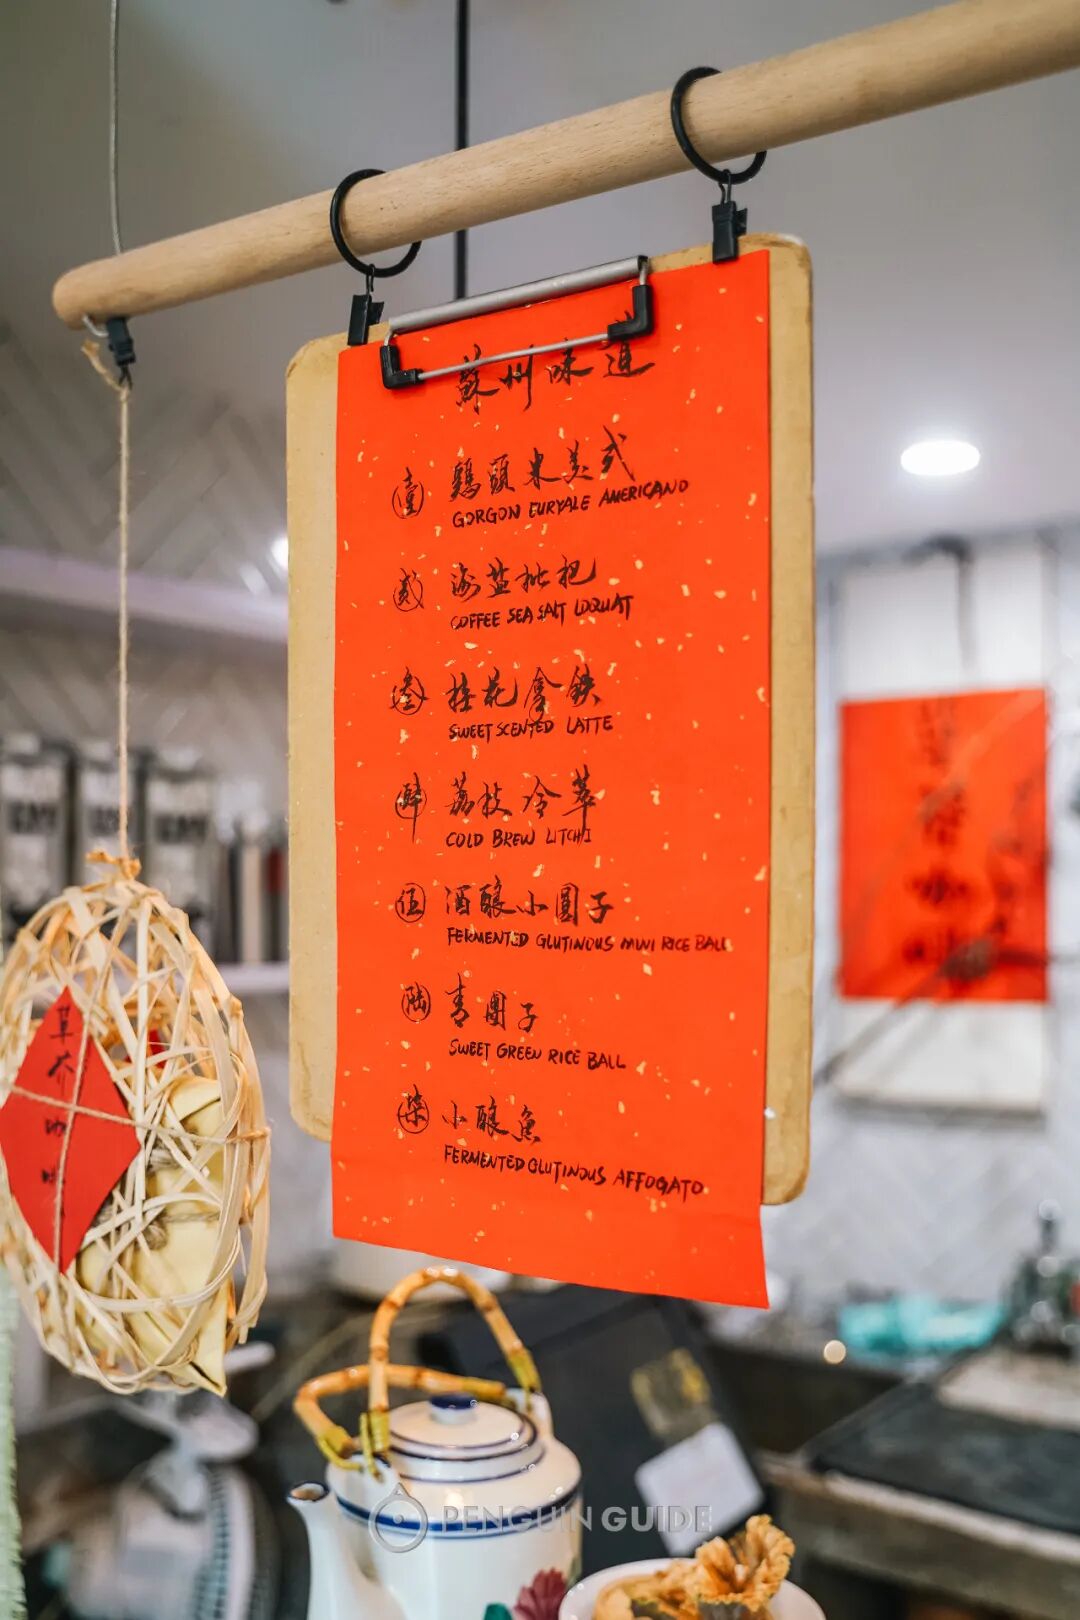 蘇州味道
壹 鷄頭米美式
GORGON EURYALE AMERICANO
貳 海盐枇杷
COFFEE SEA SALT LOQUAT
叁 桂花拿鉄
SWEET SCENTED LATTE
肆 荔枝冷萃
COLD BREW LITCHI
伍 酒釀小圓子
FERMENTED GLUTINOUS MINI RICE BALL
陸 青團子
SWEET GREEN RICE BALL
柒 小釀魚
FERMENTED GLUTINOUS AFFOGATO
PENGUIN GUIDE